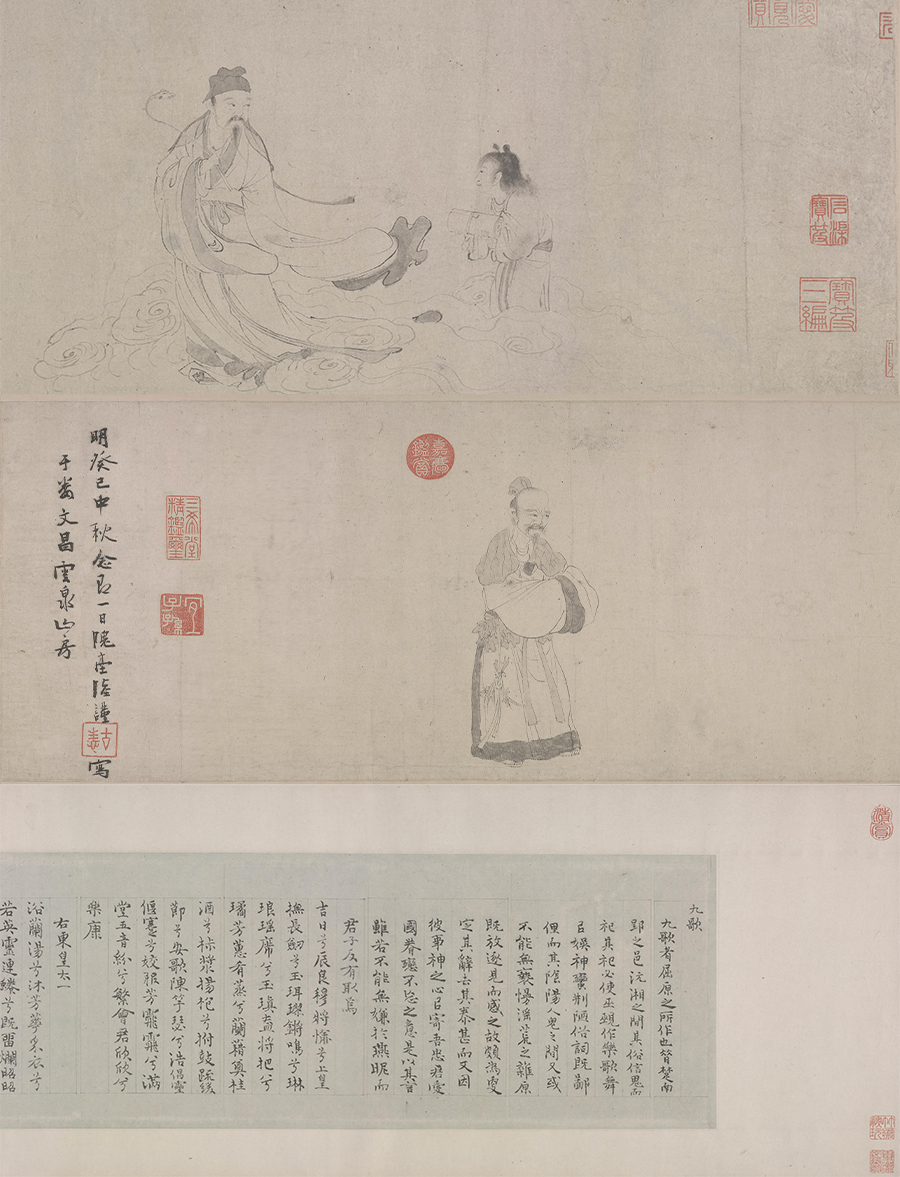 石渠寶笈
寶笈三編
嘉慶鑑賞
三希堂精鑑璽
宜子孫
明癸巳中秋念一日陸謹寫
于婁文昌雲泉山房
九歌
九歌者屈原之所作也昔楚南
郢之邑沅湘之間其俗信鬼而
祀其祀必使巫覡作樂歌舞
以娛神蠻荊陋俗詞既鄙
俚而其陰陽人鬼之間又或
不能無褻慢淫荒之雜原
既放逐見而感之故頗為更
定其辭去其泰甚而又因
彼事神之心以寄吾忠君愛
國眷戀不忘之意是以其言
雖若不能無嫌於燕昵而
君子反有取焉
吉日兮辰良穆將愉兮上皇
撫長劒兮玉珥璆鏘鳴兮琳
琅瑤席兮玉瑱盍將把兮
璚芳蕙肴蒸兮蘭藉奠桂
酒兮椒漿揚枹兮拊鼓疏緩
節兮安歌陳竽瑟兮浩倡靈
偃蹇兮姣服芳霏霏兮滿
堂五音紛兮繁會君欣欣兮
樂康
右東皇太一
浴蘭湯兮沐芳華采衣兮
若英靈連蜷兮既留爛昭昭